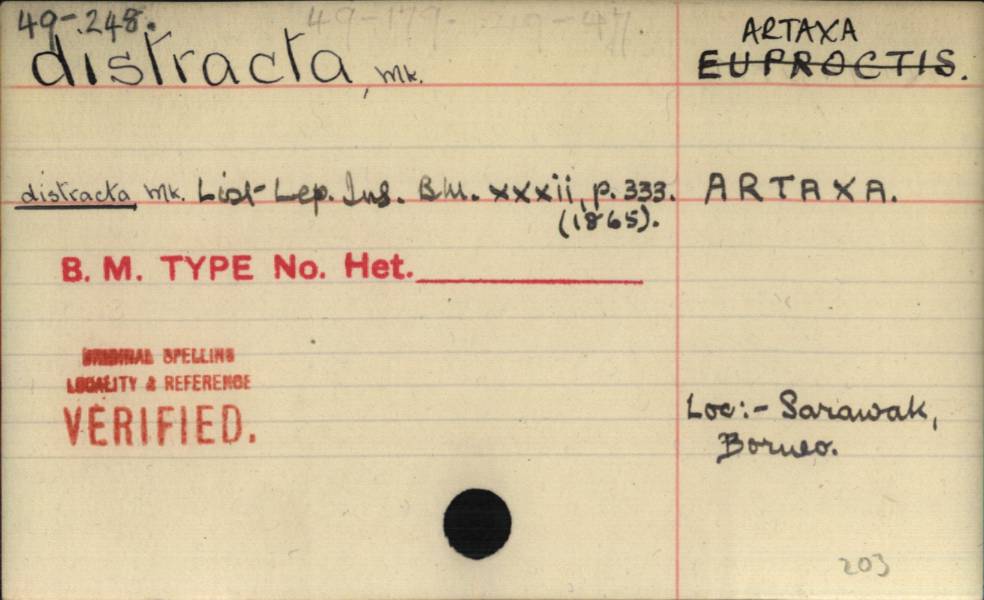 49-.248. 49-179.
distracta, Mk.
ARTAXA
EUPROCTIS.
distracta Mk. List Lep. Ins. B.M. xxxii, p. 333.
(1865).
ARTAXA.
B. M. TYPE No. Het.
ORIGINAL SPELLING
LOCALITY & REFERENCE
VERIFIED.
Loc:- Sarawak,
Borneo.
203